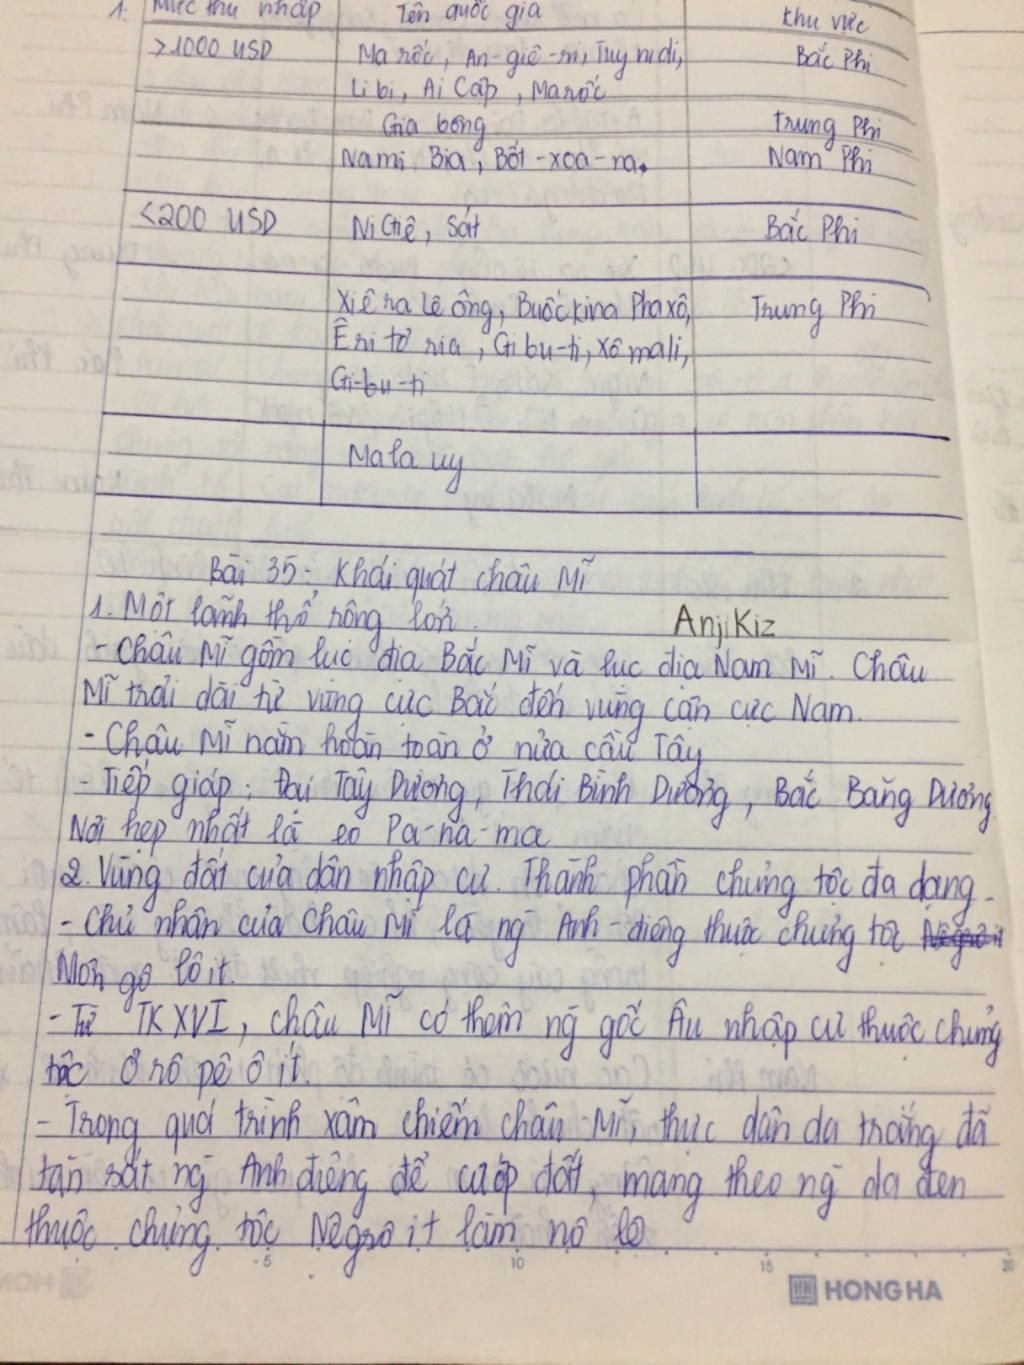 1. Mức thu nhập Tên quốc gia Khu vực
>1000 USD Ma rốc, An-giê-ri, Tuy nidi, Bắc Phi
Li bi, Ai Cập, Marốc
Gia bông Trung Phi
Nami Bia, Bốt-xoa-na. Nam Phi
<200 USD Ni Giê, Sát Bắc Phi
Xiê ra lê ông, Buốc kina Pha xô, Trung Phi
Ê ri tơ ria, Gi bu-ti, Xô mali,
Gi-bu-ti
Mala uy
Bài 35: Khái quát châu Mĩ
1. Một lãnh thổ rộng lớn.
AnjiKiz
- Châu Mĩ gồm lục địa Bắc Mĩ và lục địa Nam Mĩ. Châu
Mĩ trải dài từ vùng cực Bắc đến vùng cận cực Nam.
- Châu Mĩ nằm hoàn toàn ở nửa cầu Tây
- Tiếp giáp: Đại Tây Dương, Thái Bình Dương, Bắc Băng Dương
Nơi hẹp nhất là eo Pa-na-ma
2. Vùng đất của dân nhập cư. Thành phần chủng tộc đa dạng.
- Chủ nhân của Châu Mĩ là ng̃ Anh-điêng thuộc chủng tộc
Môn gô lô it.
- Từ TK XVI, châu Mĩ có thêm ng̃ gốc Âu nhập cư thuộc chủng
tộc Ơ rô pê ô it.
- Trong quá trình xâm chiếm châu Mĩ, thực dân da trắng đã
tàn sát ng̃ Anh điêng để cướp đất, mang theo ng̃ da đen
thuộc chủng tộc Nêgrô it làm nô lệ
5 10 15 20
HONG HA